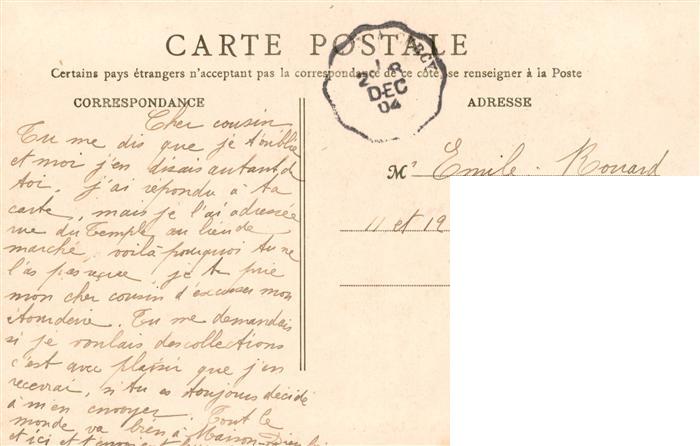 CARTE POSTALE
Certains pays étrangers n'acceptant pas la correspondance de ce côté, se renseigner à la Poste
CORRESPONDANCE
Cher cousin
Tu me dis que je t'oublie
et moi j'en disais autant de
toi, j'ai répondu à ta
carte, mais je l'ai adressée
rue du Temple au lieu de
marché, voilà pourquoi tu ne
l'as pas reçue, je te prie
mon cher cousin d'excuser mon
étourderie. Tu me demandais
si je voulais des collections
c'est avec plaisir que j'en
recevrai, si tu es toujours décidé
à m'en envoyer. Tout le
monde va bien à Maison-
et ici et
ADRESSE
Mr Emile Rouard
11 et 19
18
2
DEC
04